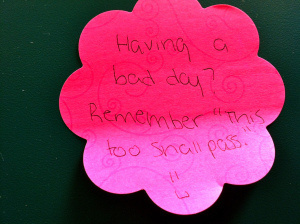 Having a
bad day?
Remember "This
too shall pass."
=)